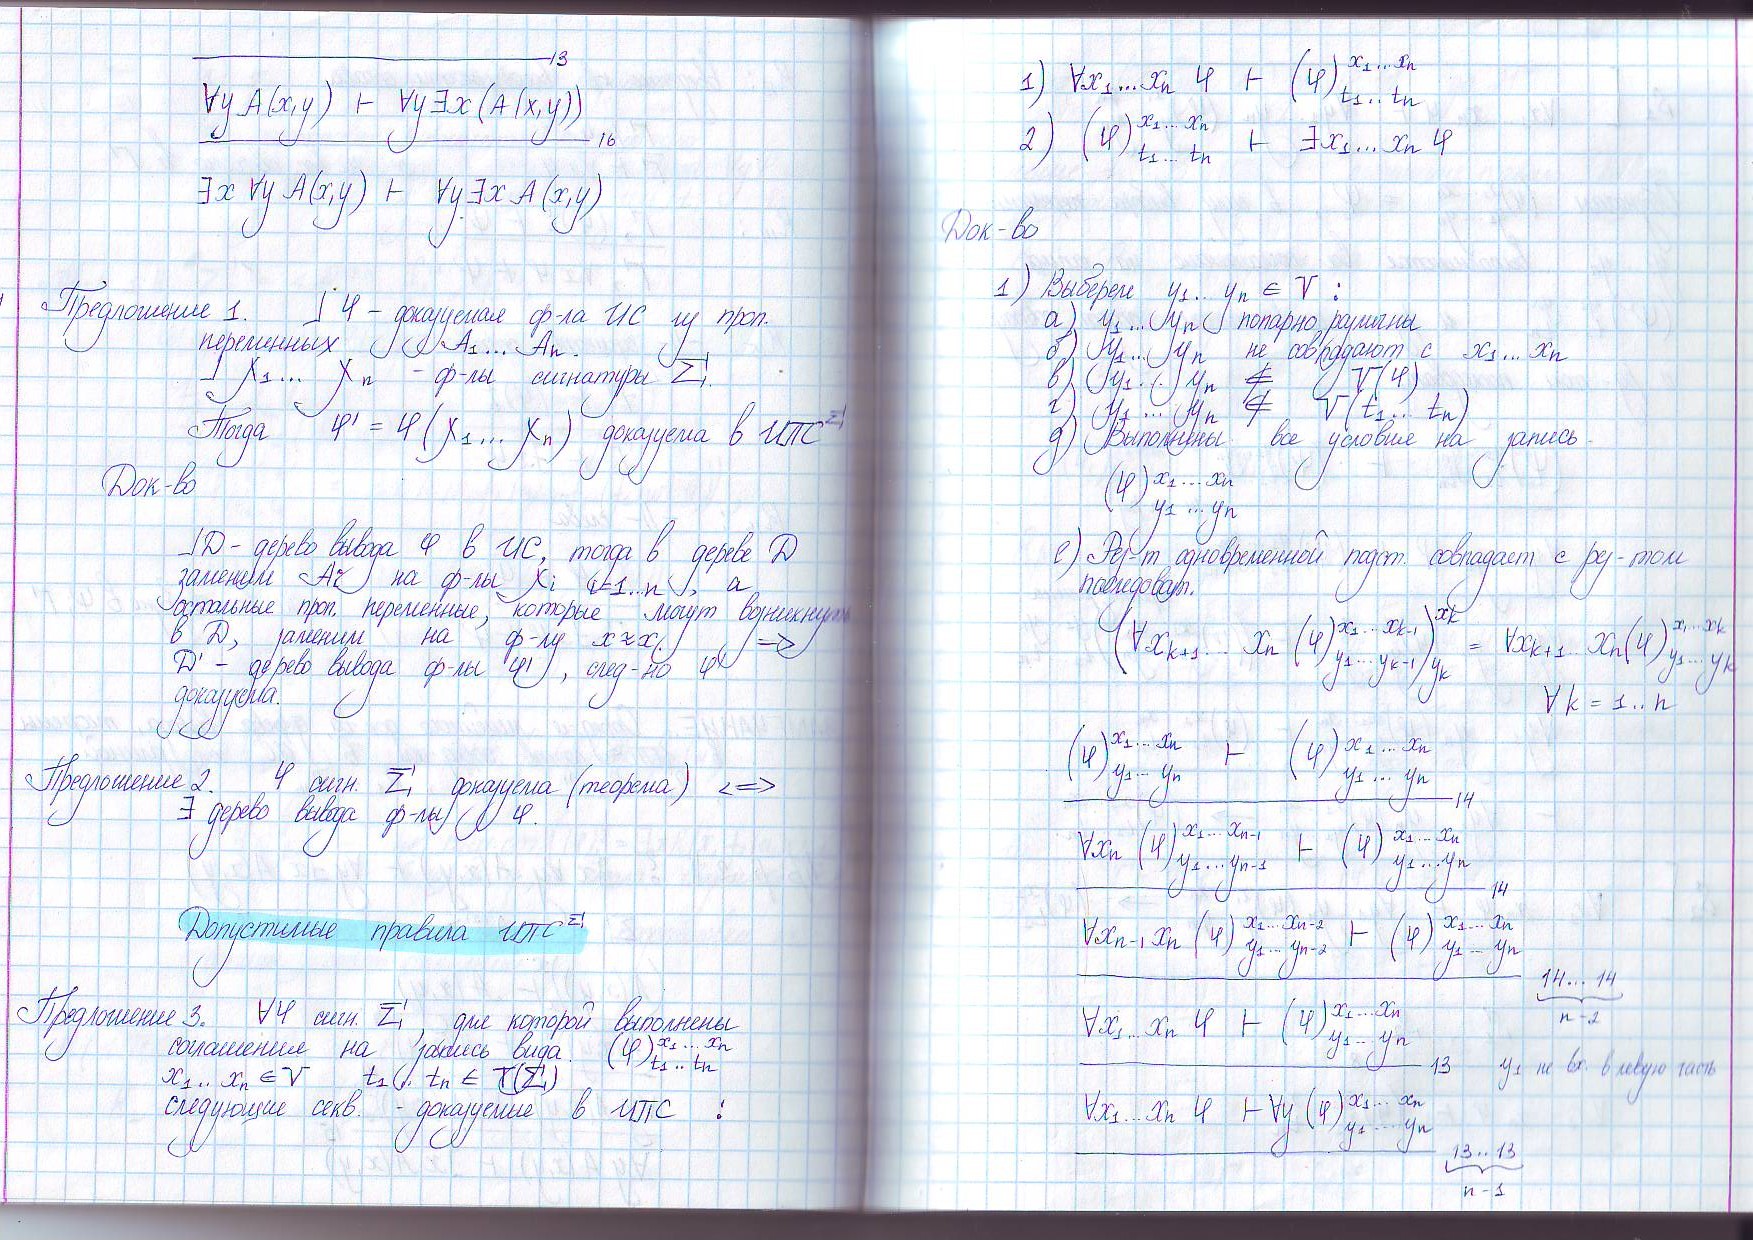 13
∀y A(x,y) ⊢ ∀y∃x(A(x,y))
16
∃x ∀y A(x,y) ⊢ ∀y∃x A(x,y)
Предложение 1. ⅃ φ – доказуемая ф-ла ИС из проп.
переменных A₁... Aₙ.
⅃ χ₁... χₙ - ф-лы сигнатуры Σ.
Тогда φ' = φ(χ₁... χₙ) доказуема в ИПС^Σ
Док-во
⅃ D – дерево вывода φ в ИС, тогда в дереве D
заменим Ai на ф-лы χi i=1..n, а
остальные проп. переменные, которые могут возникнуть
в D, заменим на ф-лу x≈x. =>
D' – дерево вывода ф-лы φ', след-но φ'
доказуема.
Предложение 2. φ сигн. Σ доказуема (теорема) <=>
∃ дерево вывода ф-лы φ.
Допустимые правила ИПС^Σ
Предложение 3. ∀φ сигн. Σ, для которой выполнены
соглашения на запись вида (φ)^{x₁...xₙ}_{t₁..tₙ}
x₁..xₙ ∈ V t₁..tₙ ∈ T(Σ)
следующие секв. - доказуемые в ИПС :
1) ∀x₁...xₙ φ ⊢ (φ)^{x₁...xₙ}_{t₁..tₙ}
2) (φ)^{x₁...xₙ}_{t₁...tₙ} ⊢ ∃x₁...xₙ φ
Док-во
1) Выберем y₁...yₙ ∈ V :
а) y₁...yₙ попарно различны
б) y₁...yₙ не совпадают с x₁...xₙ
в) y₁...yₙ ∉ V(φ)
г) y₁...yₙ ∉ V(t₁...tₙ)
д) Выполнены все условия на запись
(φ)^{x₁...xₙ}_{y₁...yₙ}
е) Рез-т одновременной подст. совпадает с рез-том
последоват.
(∀x_{k+1}...xₙ (φ)^{x₁...x_{k-1}}_{y₁...y_{k-1}})^{x_k}_{y_k} = ∀x_{k+1}..xₙ(φ)^{x₁...x_k}_{y₁...y_k}
∀k = 1..n
(φ)^{x₁...xₙ}_{y₁...yₙ} ⊢ (φ)^{x₁...xₙ}_{y₁...yₙ}
14
∀xₙ (φ)^{x₁...x_{n-1}}_{y₁...y_{n-1}} ⊢ (φ)^{x₁...xₙ}_{y₁...yₙ}
14
∀x_{n-1} xₙ (φ)^{x₁...x_{n-2}}_{y₁...y_{n-2}} ⊢ (φ)^{x₁...xₙ}_{y₁...yₙ}
14... 14
n-2
∀x₁...xₙ φ ⊢ (φ)^{x₁...xₙ}_{y₁...yₙ}
13 y₁ не вх. в левую часть
∀x₁...xₙ φ ⊢ ∀y (φ)^{x₁...xₙ}_{y₁...yₙ}
13..13
n-1